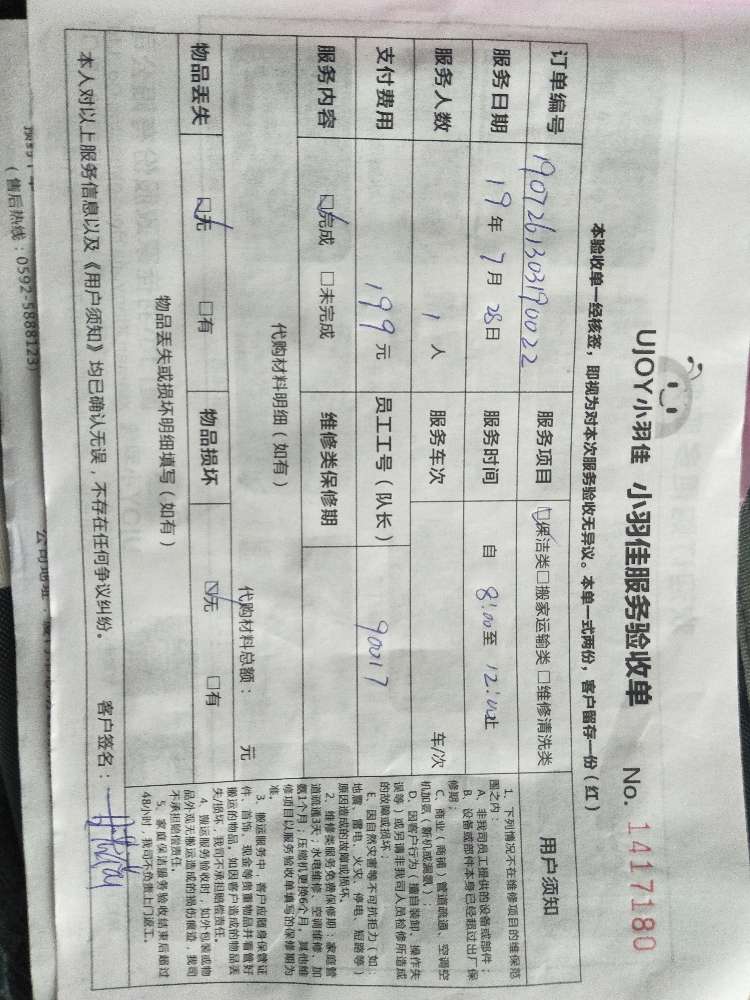 UJOY小羽佳 小羽佳服务验收单 No. 1417180
本验收单一经核签，即视为对本次服务验收无异议。本单一式两份，客户留存一份（红）
订单编号 190726130319 0022 服务项目 □保洁类□搬家运输类 □维修清洗类
服务日期 19 年 7 月 28 日 服务时间 自 8:00 至 12:00 止
服务人数 1 人 服务车次 车/次
支付费用 199 元 员工工号（队长） 90017
服务内容 □完成 □未完成 维修类保修期
代购材料明细（如有）
代购材料总额： 元
物品丢失 □无 □有 物品损坏 □无 □有
物品丢失或损坏明细填写（如有）
本人对以上服务信息以及《用户须知》均已确认无误，不存在任何争议纠纷。 客户签名：
用户须知
1、下列情况不在维修项目的维保范
围之内：
A、非我司员工提供的设备或部件；
B、设备或部件本身已经超过出厂保
修期；
C、商业（商铺）管道疏通、空调空
机加氨（新机或漏氨）；
D、因客户行为（擅自装卸、操作失
误等）或另请非我司人员检修所造成
的故障或损坏；
E、因自然灾害等不可抗拒力（如：
地震、雷电、火灾、停电、短路等）
原因造成的故障或损坏。
2、维修类服务免费保修期：家庭管
道疏通3天；水电维修、空调维修、加
氨1个月；压缩机更换6个月，其他维
修项目以服务验收单填写的保修期为
准。
3、搬运服务中，客户应随身保管证
件、首饰、现金等贵重物品并看管好
搬运的物品，如因客户造成的物品丢
失/损坏，我司不承担赔偿责任。
4、搬运服务验收时，如外包装或物
品外观无搬运造成的损伤痕迹，我司
不承担赔偿责任。
5、家庭保洁服务验收结束后超过
48小时，我司不负责上门返工。
（售后热线：0592-5888123）
公司地址：